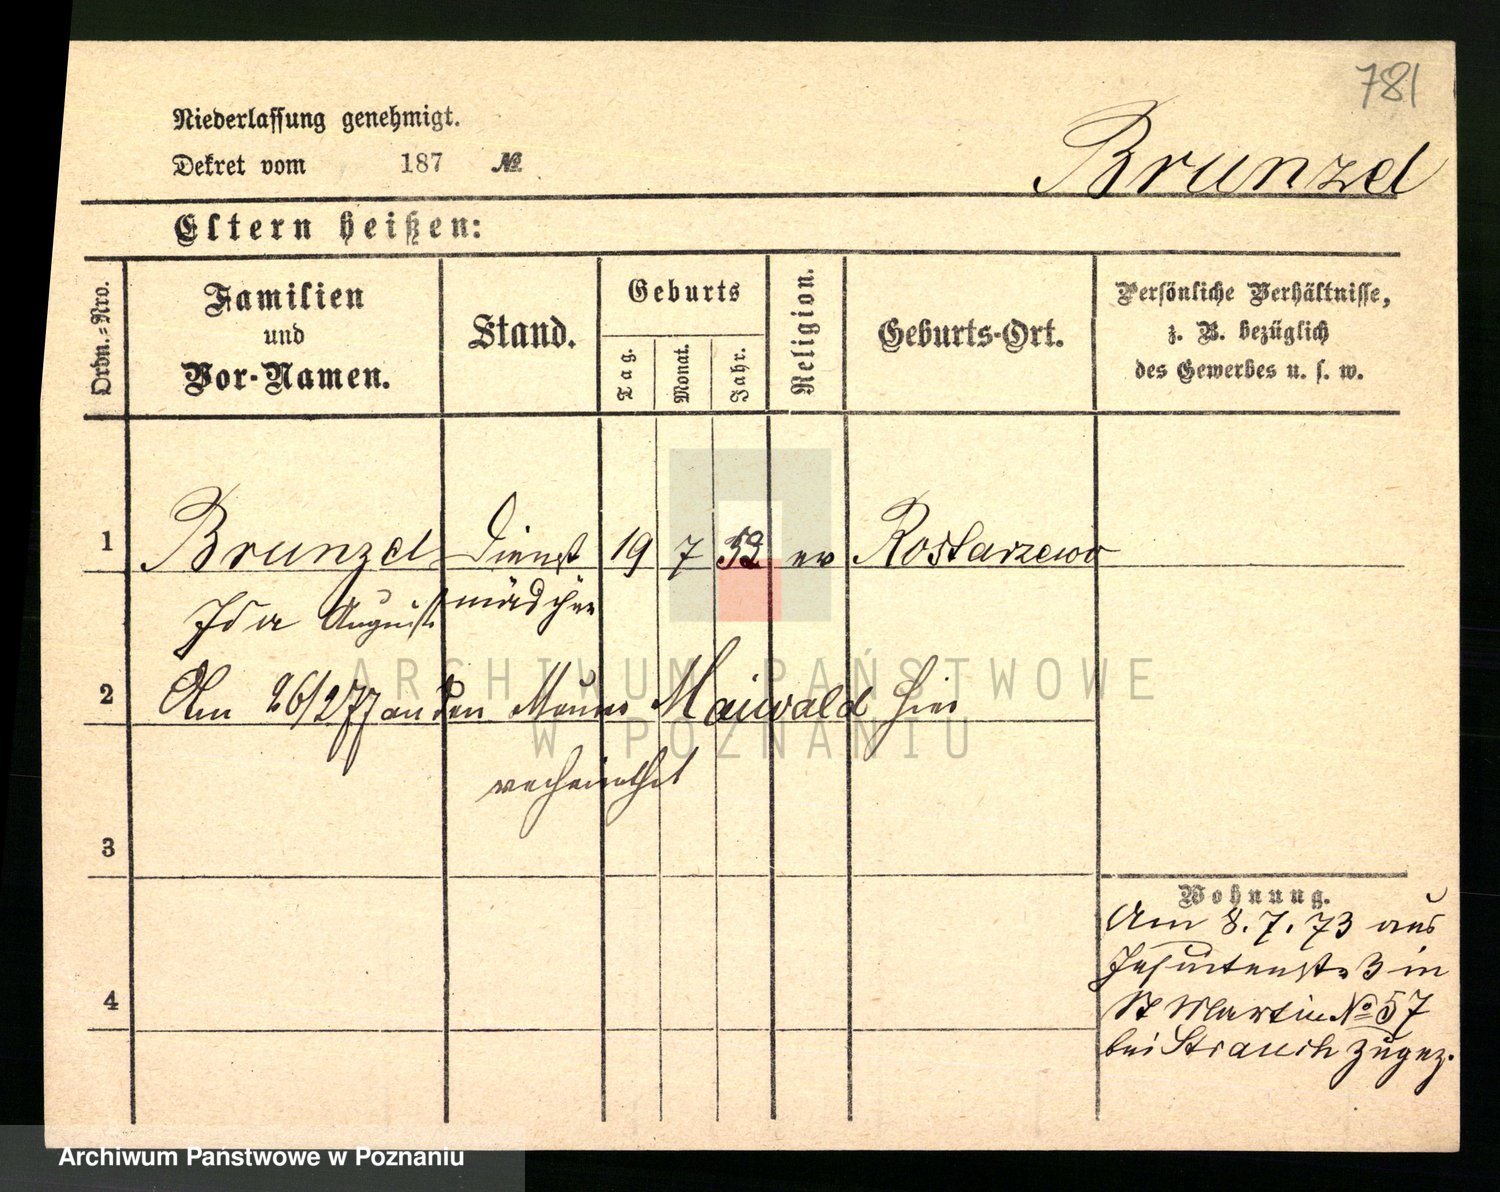 781
Niederlassung genehmigt.
Dekret vom 187 №
Brunzel
Eltern heißen:
Ordn.=Nro.
Familien
und
Vor-Namen.
Stand.
Geburts
Tag.
Monat.
Jahr.
Religion.
Geburts-Ort.
Persönliche Verhältnisse,
z. B. bezüglich
des Gewerbes u. s. w.
1 Brunzel Dienst 19 7 52 ev Rostarzewo
Ida August mädchen
2 Am 26/2 77 an den Maurer Maiwald hier
verheirathet
3
4
Wohnung.
Am 8. 7. 73 aus
Jesuitenstr 3 in
St Martin № 57
bei Strauch zugez.
ARCHIWUM PAŃSTWOWE
W POZNANIU
Archiwum Państwowe w Poznaniu